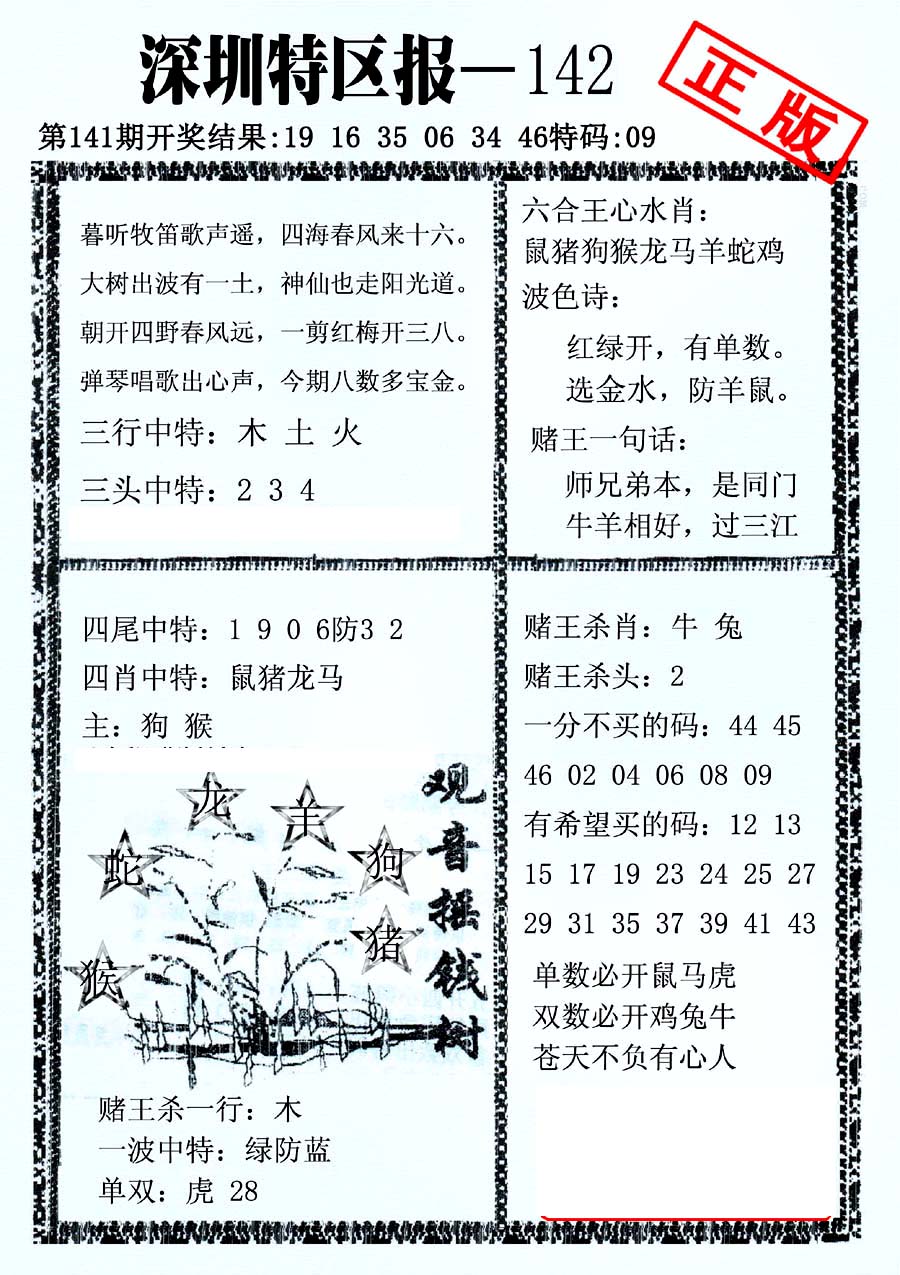 深圳特区报—142
正版
第141期开奖结果:19 16 35 06 34 46特码:09
暮听牧笛歌声遥，四海春风来十六。
大树出波有一土，神仙也走阳光道。
朝开四野春风远，一剪红梅开三八。
弹琴唱歌出心声，今期八数多宝金。
三行中特：木 土 火
三头中特：2 3 4
六合王心水肖：
鼠猪狗猴龙马羊蛇鸡
波色诗：
红绿开，有单数。
选金水，防羊鼠。
赌王一句话：
师兄弟本，是同门
牛羊相好，过三江
四尾中特：1 9 0 6防3 2
四肖中特：鼠猪龙马
主：狗 猴
龙
羊
蛇
狗
猪
猴
观音摇钱树
赌王杀一行：木
一波中特：绿防蓝
单双：虎 28
赌王杀肖：牛 兔
赌王杀头：2
一分不买的码：44 45
46 02 04 06 08 09
有希望买的码：12 13
15 17 19 23 24 25 27
29 31 35 37 39 41 43
单数必开鼠马虎
双数必开鸡兔牛
苍天不负有心人